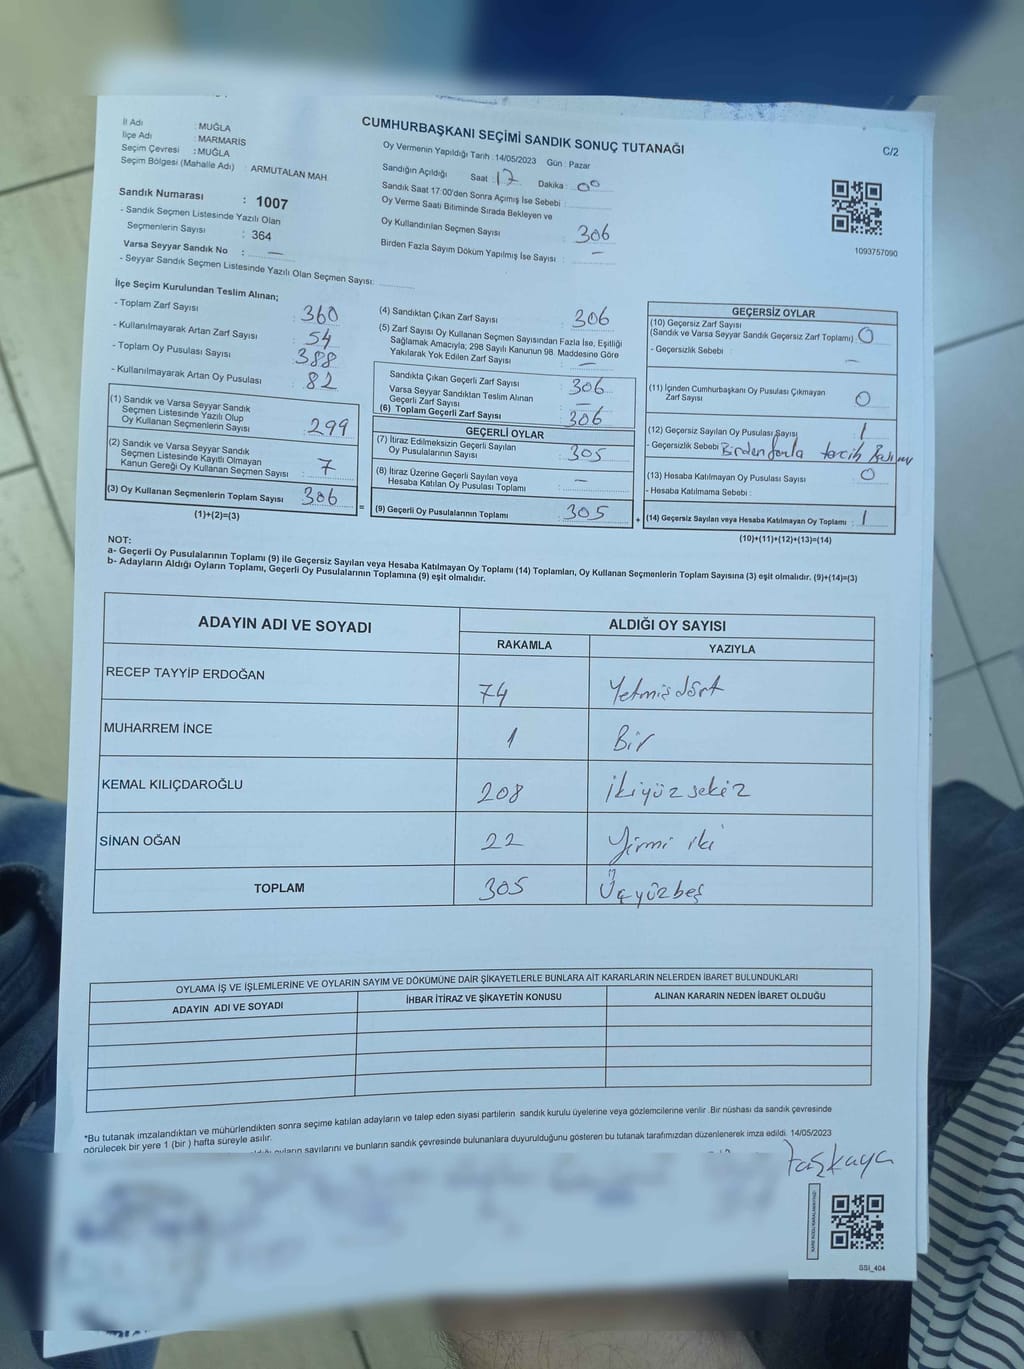 CUMHURBAŞKANI SEÇİMİ SANDIK SONUÇ TUTANAĞI
C/2
İl Adı : MUĞLA
İlçe Adı : MARMARİS
Seçim Çevresi : MUĞLA
Seçim Bölgesi (Mahalle Adı) : ARMUTALAN MAH.
Sandık Numarası : 1007
- Sandık Seçmen Listesinde Yazılı Olan
Seçmenlerin Sayısı : 364
Varsa Seyyar Sandık No : —
- Seyyar Sandık Seçmen Listesinde Yazılı Olan Seçmen Sayısı:
Oy Vermenin Yapıldığı Tarih : 14/05/2023 Gün : Pazar
Sandığın Açıldığı Saat : 17 Dakika : 00
Sandık Saat 17:00'den Sonra Açımış İse Sebebi :
Oy Verme Saati Bitiminde Sırada Bekleyen ve
Oy Kullandırılan Seçmen Sayısı 306
Birden Fazla Sayım Döküm Yapılmış İse Sayısı : —
1093757090
İlçe Seçim Kurulundan Teslim Alınan;
- Toplam Zarf Sayısı 360
- Kullanılmayarak Artan Zarf Sayısı : 54
- Toplam Oy Pusulası Sayısı : 388
- Kullanılmayarak Artan Oy Pusulası : 82
(1) Sandık ve Varsa Seyyar Sandık
Seçmen Listesinde Yazılı Olup
Oy Kullanan Seçmenlerin Sayısı : 299
(2) Sandık ve Varsa Seyyar Sandık
Seçmen Listesinde Kayıtlı Olmayan
Kanun Gereği Oy Kullanan Seçmen Sayısı : 7
(3) Oy Kullanan Seçmenlerin Toplam Sayısı : 306
(1)+(2)=(3)
(4) Sandıktan Çıkan Zarf Sayısı : 306
(5) Zarf Sayısı Oy Kullanan Seçmen Sayısından Fazla İse, Eşitliği
Sağlamak Amacıyla; 298 Sayılı Kanunun 98. Maddesine Göre
Yakılarak Yok Edilen Zarf Sayısı : —
Sandıkta Çıkan Geçerli Zarf Sayısı : 306
Varsa Seyyar Sandıktan Teslim Alınan
Geçerli Zarf Sayısı : —
(6) Toplam Geçerli Zarf Sayısı : 306
GEÇERLİ OYLAR
(7) İtiraz Edilmeksizin Geçerli Sayılan
Oy Pusulalarının Sayısı : 305
(8) İtiraz Üzerine Geçerli Sayılan veya
Hesaba Katılan Oy Pusulası Toplamı : —
= (9) Geçerli Oy Pusulalarının Toplamı : 305
GEÇERSİZ OYLAR
(10) Geçersiz Zarf Sayısı
(Sandık ve Varsa Seyyar Sandık Geçersiz Zarf Toplamı) : 0
- Geçersizlik Sebebi : —
(11) İçinden Cumhurbaşkanı Oy Pusulası Çıkmayan
Zarf Sayısı : 0
(12) Geçersiz Sayılan Oy Pusulası Sayısı : 1
- Geçersizlik Sebebi : Birden fazla tercih
(13) Hesaba Katılmayan Oy Pusulası Sayısı : 0
- Hesaba Katılmama Sebebi :
+ (14) Geçersiz Sayılan veya Hesaba Katılmayan Oy Toplamı : 1
(10)+(11)+(12)+(13)=(14)
NOT:
a- Geçerli Oy Pusulalarının Toplamı (9) ile Geçersiz Sayılan veya Hesaba Katılmayan Oy Toplamı (14) Toplamları, Oy Kullanan Seçmenlerin Toplam Sayısına (3) eşit olmalıdır. (9)+(14)=(3)
b- Adayların Aldığı Oyların Toplamı, Geçerli Oy Pusulalarının Toplamına (9) eşit olmalıdır.
ADAYIN ADI VE SOYADI
ALDIĞI OY SAYISI
RAKAMLA YAZIYLA
RECEP TAYYİP ERDOĞAN 74 Yetmiş dört
MUHARREM İNCE 1 Bir
KEMAL KILIÇDAROĞLU 208 İkiyüz sekiz
SİNAN OĞAN 22 Yirmi iki
TOPLAM 305 Üçyüzbeş
OYLAMA İŞ VE İŞLEMLERİNE VE OYLARIN SAYIM VE DÖKÜMÜNE DAİR ŞİKAYETLERLE BUNLARA AİT KARARLARIN NELERDEN İBARET BULUNDUKLARI
ADAYIN ADI VE SOYADI İHBAR İTİRAZ VE ŞİKAYETİN KONUSU ALINAN KARARIN NEDEN İBARET OLDUĞU
*Bu tutanak imzalandıktan ve mühürlendikten sonra seçime katılan adayların ve talep eden siyasi partilerin sandık kurulu üyelerine veya gözlemcilerine verilir. Bir nüshası da sandık çevresinde
görülecek bir yere 1 (bir) hafta süreyle asılır.
sayılarını ve bunların sandık çevresinde bulunanlara duyurulduğunu gösteren bu tutanak tarafımızdan düzenlenerek imza edildi. 14/05/2023
taşkaya
SSI_404